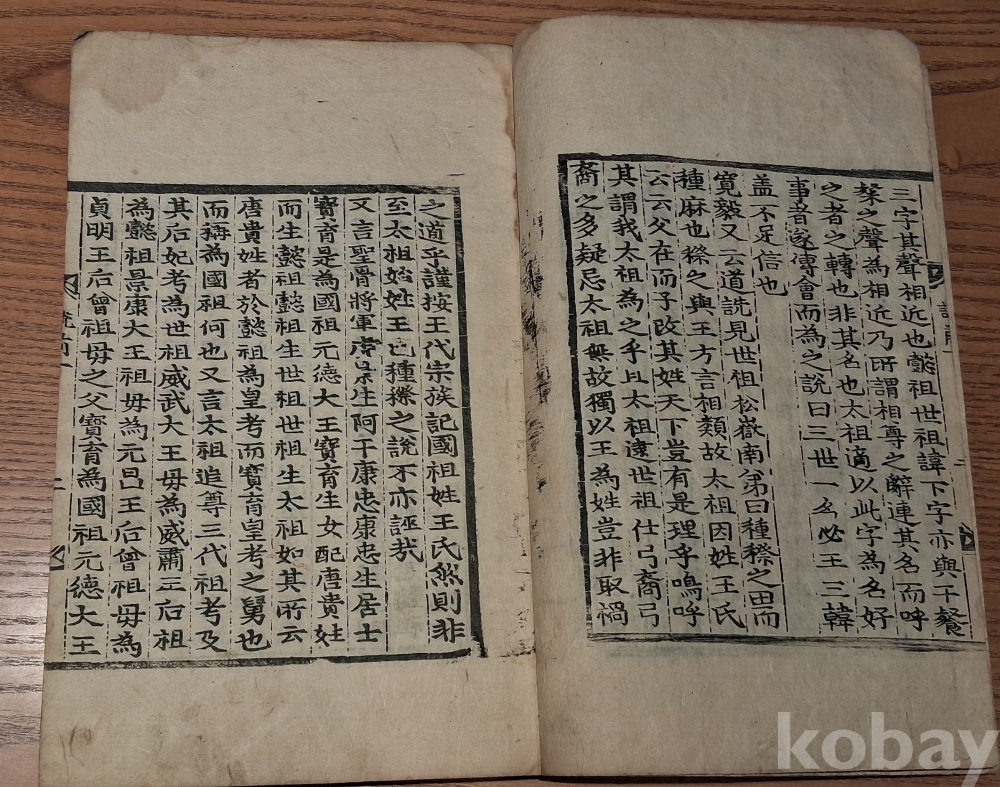 三字其聲相近也懿祖世祖諱下字亦與干餐
粲之聲為相近乃所謂相尊之辭連其名而呼
之者之轉也非其名也太祖適以此字為名好
事者遂傳會而為之說曰三世一名必王三韓
盖不足信也
寬毅又云道詵見世祖松嶽南弟曰種穄之田而
種麻也穄之與王方言相類故太祖因姓王氏
云云父在而子改其姓天下豈有是理乎嗚呼
其謂我太祖為之乎且太祖逮世祖仕弓裔弓
裔之多疑忌太祖無故獨以王為姓豈非取禍
之道乎謹按王代宗族記國祖姓王氏然則非
至太祖始姓王也種穄之說不亦誣㢤
又言聖骨將軍虎景生阿干康忠康忠生居士
寶育是為國祖元德大王寶育生女配唐貴姓
而生懿祖懿祖生世祖世祖生太祖如其所云
唐貴姓者於懿祖為皇考而寶育皇考之舅也
而稱為國祖何也又言太祖追尊三代祖考及
其后妃考為世祖威武大王母為威肅王后祖
為懿祖景康大王祖母為元昌王后曾祖母為
貞明王后曾祖母之父寶育為國祖元德大王
說前一 二
kobay